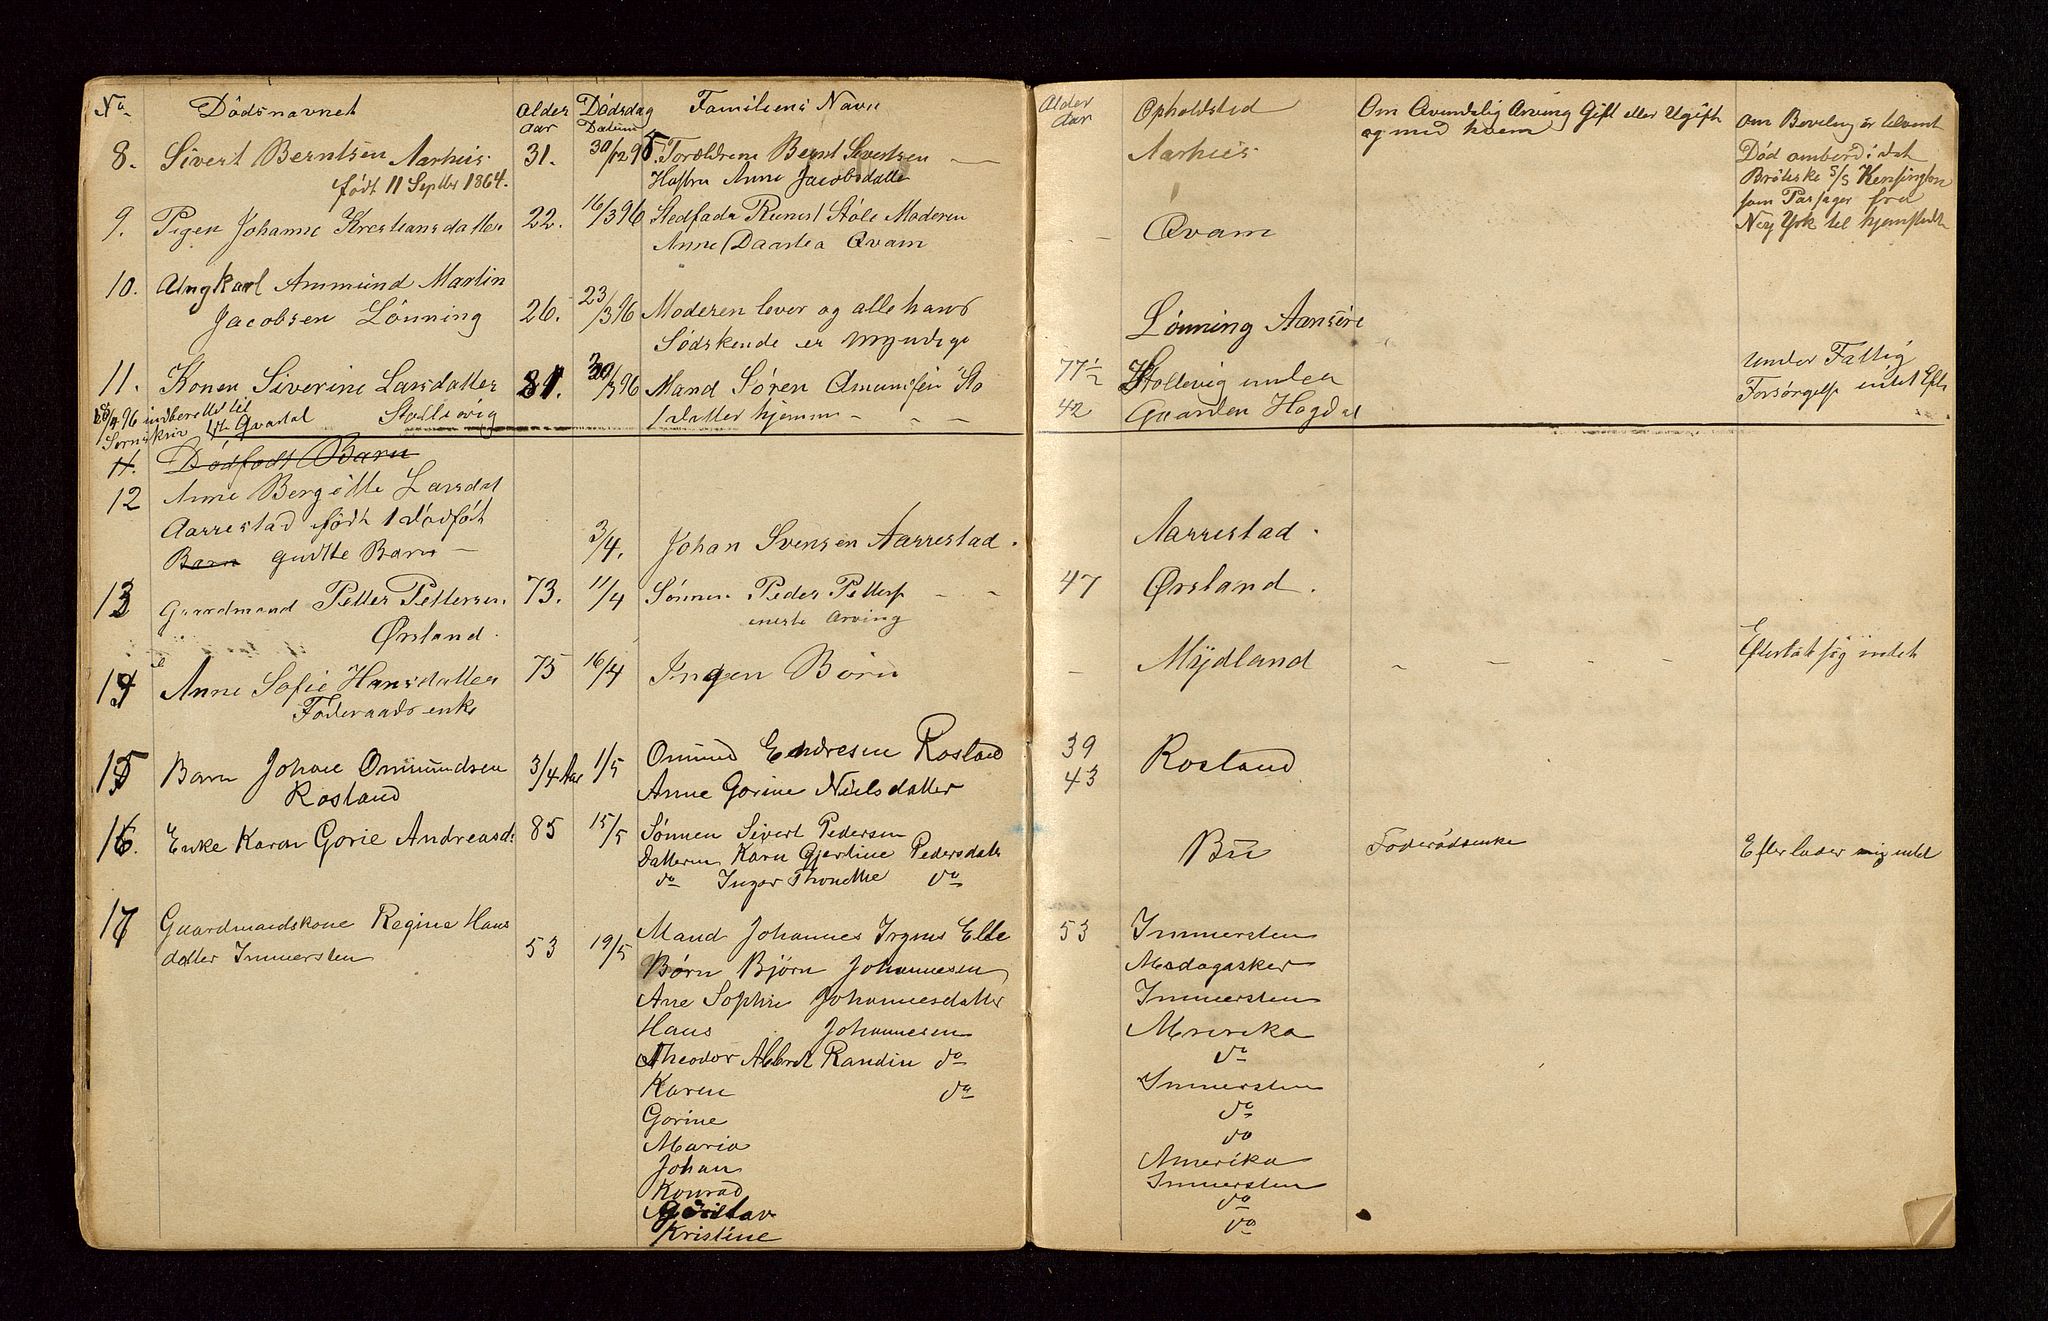 No Dödsnavnet Alder Aar Dödsdag Datum Familiens Navn
8. Sivert Berntsen Aarhus 31. 30/12 95. Forældrene Bernt Sivertsen
født 11 Septbr 1864. Hustru Anne Jacobsdatter
9. Pigen Johanne Krestiansdatter 22. 16/3 96 Stedfader Stöle Moderen
Anne Daartea Qvam
10. Ungkarl Ammund Martin
Jacobsen Lönning 26. 23/3 96 Moderen lever og alle hans
Södskende er myndige
11. Konen Siverine Larsdatter 81. 30/3 96 Mand Sören
indberettet til Stollsvig 1 datter hjemme
Sornskriv Qvartal
11. Dödfødt Barn
12 Anne Bergitte Larsdat
Aarrestad födt 1 dödföt
Barn gudtte Barn 3/4. Johan Svensen Aarrestad.
13 Gaardmand Petter Pettersen 73. 11/4 Sönnen Peder Petters
Ørsland. eneste Arving
14 Anne Sofie Hansdatter 75 16/4 Ingen Börn
Föderaads enke
15 Barn Johan Ommundsen 3/4 Aar 1/5 Omund Endresen Rosland
Rosland Anne Gorine Nielsdatter
16. Enke Karen Gorie Andreasd. 85 15/5 Sønnen Sivert Pedersen
Datteren Karn Gjertine Pedersdatter
do Inger Thonette do
17 Gaardmandskone Regine Hans
datter Immersten 53 19/5 Mand Johannes
Børn Bjørn Johannesen
Ane Sophie Johannesdatter
Hans Johannesen
Theodor Albret Randin do
Karen do
Gorine
Maria
Johan
Konrad
Gustav
Kristine
Alder Aar Opholdsted Om Qvindelig Arving Gift eller Ugift
og med hvem om Bevilling er
Aarhus Død ombord i det
Brötiske S/S Kensington
som Passager fra
Qvam Ney York til hjemstedet
Lönning Aansire
77 1/2 Stollevig under Under Fattig
42 Gaarden Hogdal Forsørgelse intet
Aarrestad.
47 Ørsland.
Mydland intet
39 Rosland
43
Bu Foderådsenke Efterlader sig intet
53 Immersten
Madagasker
Immersten
Amerika
do
Immersten
do
do
Amerika
Immersten
do
do